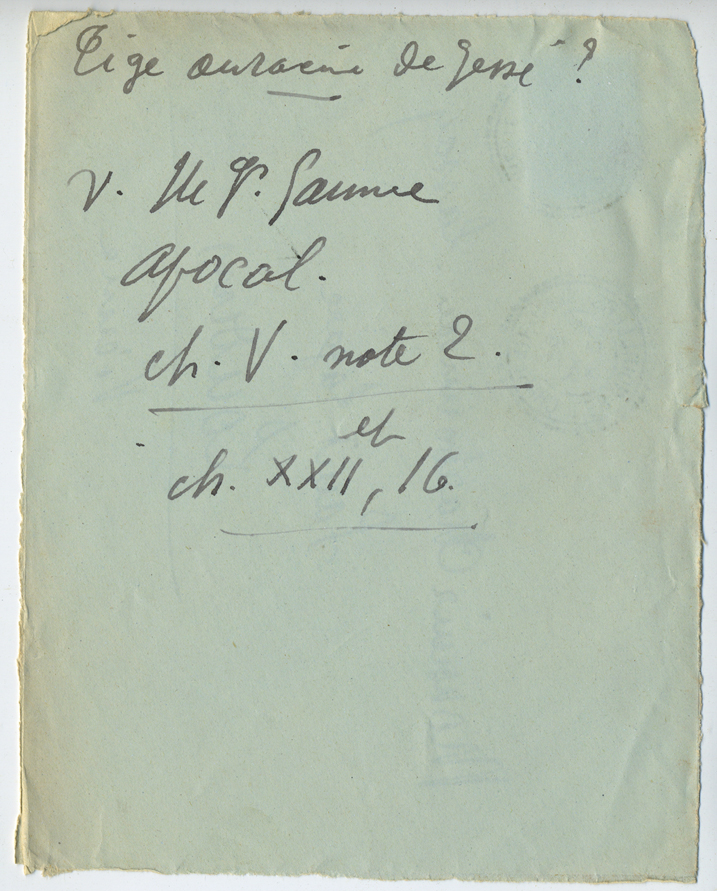 Tige ou racine de Jessé ?
v. Mgr. Gaume
Apocal.
ch. V. note 2.
et
ch. XXII, 16.